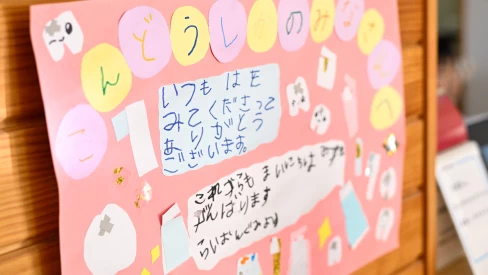 こんどうしかのみなさんへ
いつも はを
みてくださって
ありがとう
ございます。
これからも まいにちはみがき
がんばります
らいおんぐみより